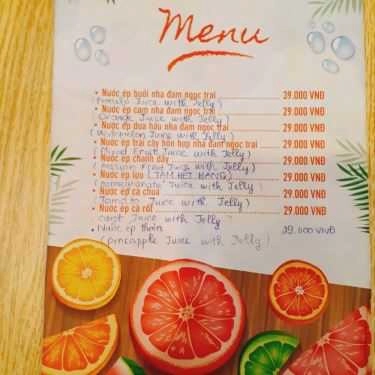 Menu
• Nước ép bưởi nha đam ngọc trai 29.000 VNĐ
(Pomelo Juice with Jelly)
• Nước ép cam nha đam ngọc trai 29.000 VNĐ
(Orange Juice with Jelly)
• Nước ép dưa hấu nha đam ngọc trai 29.000 VNĐ
(Watermelon Juice with Jelly)
• Nước ép trái cây hỗn hợp nha đam ngọc trai 29.000 VNĐ
(Mixed Fruit Juice with Jelly)
• Nước ép chanh dây 29.000 VNĐ
(Passion Fruit Juice with Jelly)
• Nước ép lựu (TẠM HẾT HÀNG) 29.000 VNĐ
(Pomegranate Juice with Jelly)
• Nước ép cà chua 29.000 VNĐ
(Tomato Juice with Jelly)
• Nước ép cà rốt 29.000 VNĐ
Carot Juice with Jelly
• Nước ép thơm 29.000 VNĐ
(pineapple Juice with Jelly)